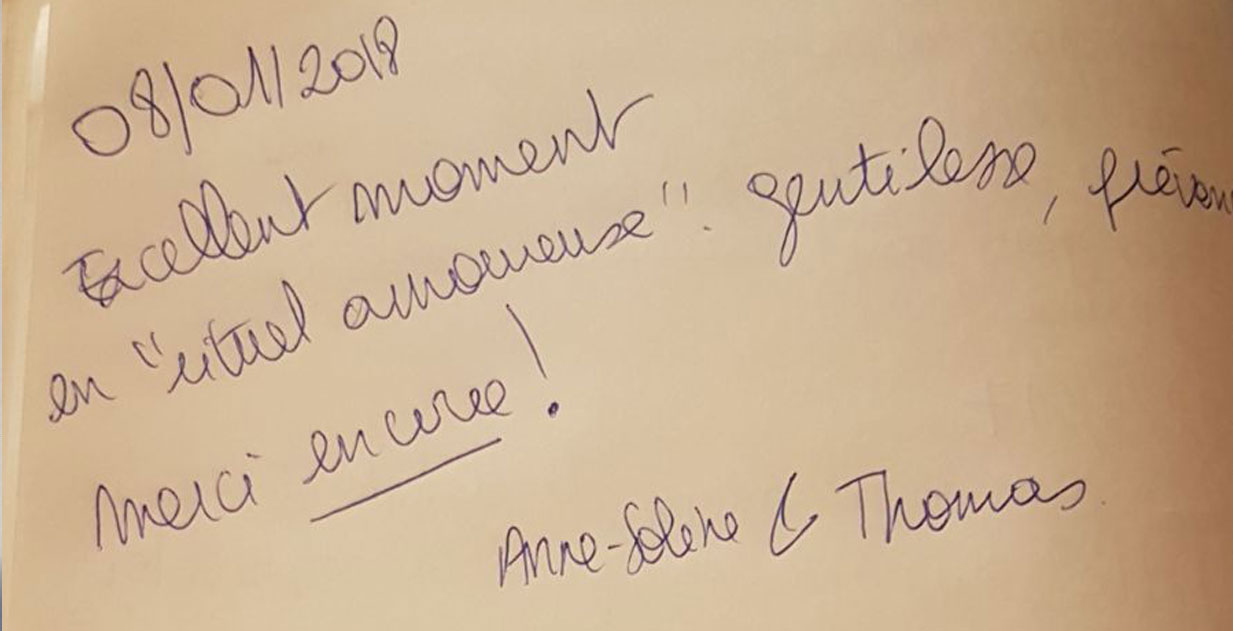 08/01/2018
Excellent moment
en "rituel amoureuse". gentilesse,
Merci encore !
Anne-Solène & Thomas